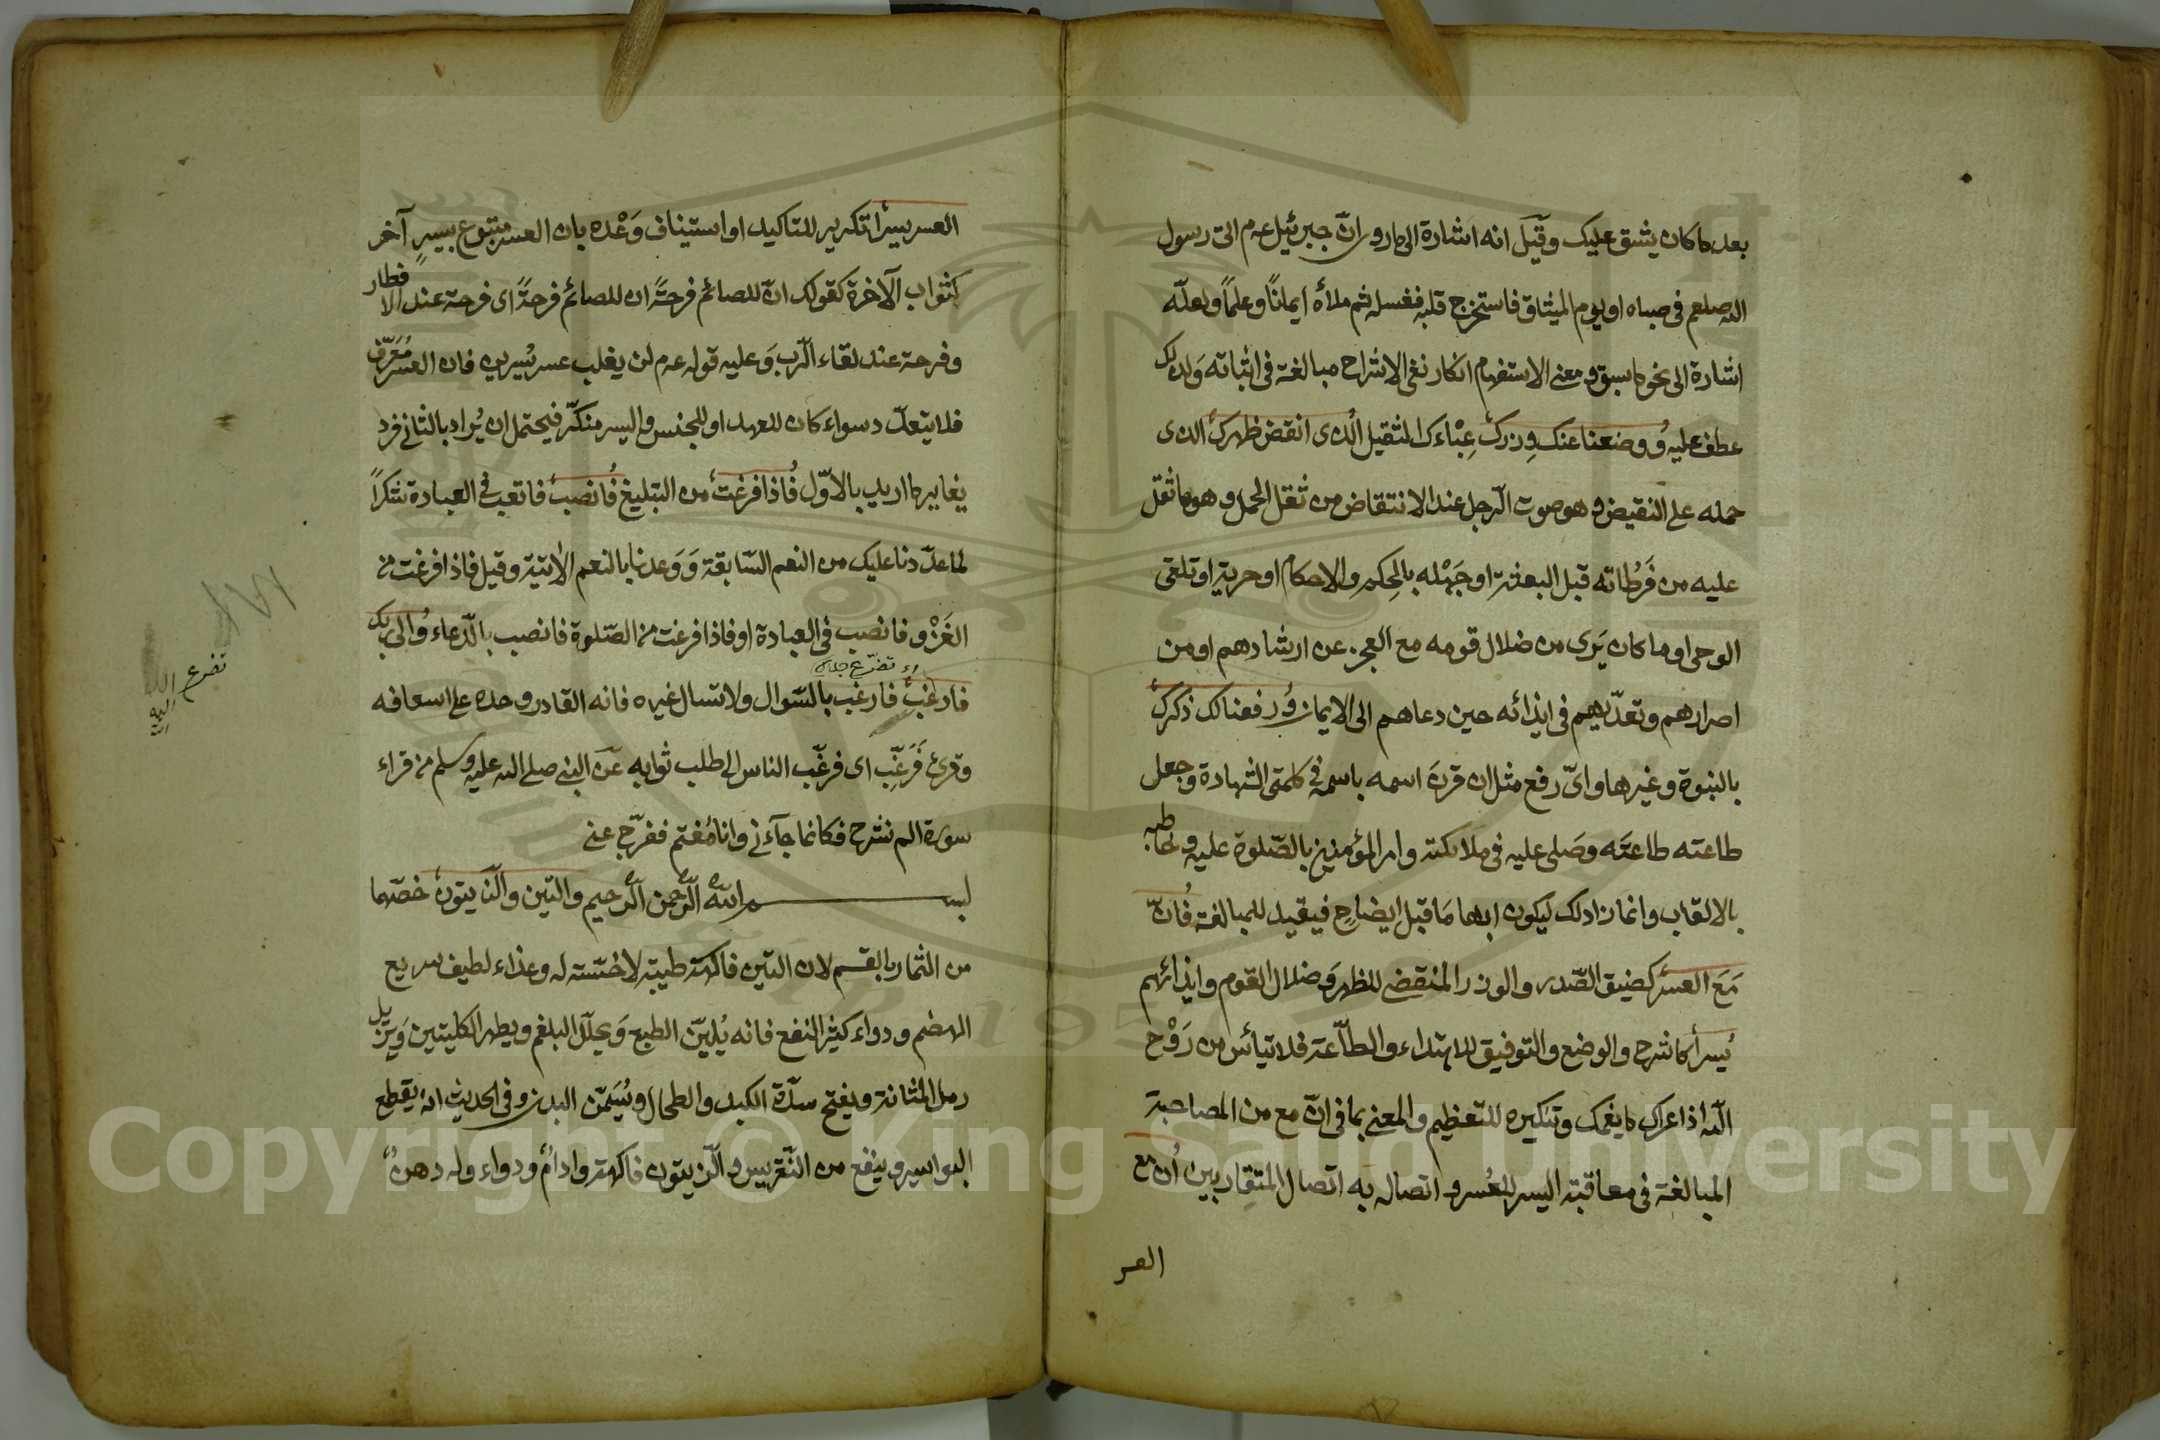 بعد ما كان يشق عليك وقيل انه اشارة الى ما روى انّ جبرئيل عم اتى رسول
الله صلعم فى صباه او يوم الميثاق فاستخرج قلبه فغسله ثم ملأه ايمانًا وعلمًا ولعلّه
اشارة الى نحو ما سبق ومعنى الاستفهام انكار نفى الانشراح مبالغة فى اثباته ولذلك
عطف عليه ووضعنا عنك وزرك عِبْاءك الثقيل الذى انقض ظهرك الذى
حمله على النقيض وهو صوت الرجل عند الانتقاض من ثقل الحمل وهو ما ثقل
عليه من فَرَطاته قبل البعثة او جَهْله بالحِكَم والاحكام او حريته او تلقى
الوحى او ما كان يَرى من ضلال قومه مع العجز عن ارشادهم او من
اصرارهم وتعدّيهم فى ايذائه حين دعاهم الى الايمان ورفعنا لك ذكرك
بالنبوة وغيرها واىّ رفع مثل ان قرن اسمه باسمه فى كلمتى الشهادة وجعل
طاعته طاعتَه وصَلى عليه فى ملائكته وامر المؤمنين بالصّلوة عليه وخاطبه
بالالقاب وانما زاد لك ليكون ابهاما قبل ايضاح فيفيد للمبالغة فانّ
مَعَ العسر كضيق الصّدر والوزر المنقض للظهر وَضلال القوم وايذائهم
يُسرًا كالشرح والوضع والتوفيق للاهتداء والطاعة فلا تيأس من رَوْح
الله اذا عراك ما يغمك وتنكيره للتعظيم والمعنى بما فى انّ مع من المصاحبة
المبالغة فى معاقبة اليسر للعُسر واتصاله به اتصال المتقاربين ان مع
العسر
العسر يسرًا تكرير للتاكيد او استيناف وَعْده بان العسر متبوع بيسرٍ آخر
كثواب الآخرة كقولك انّ للصائم فرحةً ان للصائم فرحةً اى فرحة عند الافطار
وفرحة عند لقاء الرّب وَعليه قوله عم لن يغلب عسر يُسرين فان العسر مُعَرّف
فلا يتعدّد سواء كان للعهد او للجنس واليسر منكّر فيحتمل ان يُراد بالثانى فرد
يغاير ما اريد بالاوّل فاذا فرغت من التبليغ فانصب فاتعب فى العبادة شكرًا
لما عدّدنا عليك من النعم السّابقة وَوَعدنا بالنعم الاٰتية وقيل فاذا فرغت من
الغَزْو فانصب فى العبادة او فاذا فرغت من الصّلوة فانصب بالدّعاء والى ربك
فارغب فارغب بالسّوال ولا تسال غيره فانه القادر وحده على اسعافه
وقرئ فَرَغِّب اى فرغّب الناس الى طلب ثوابه عن النبى صلى الله عليه وسلم من قراء
سورة الم نشرح فكانما جآءنى وانا مُغتم ففرّج عنى
بسم الله الرّحمن الرّحيم والتين والزّيتون خصّهما
من الثمار بالقسم لان التين فاكهة طيبة لا فضلة له وغذاء لطيف سريع
الهضم ودواء كثير النفع فانه يُليّن الطبع وَيحلّل البلغم ويطهر الكليتين وَيزيل
رمل المثانة ويفتح سدّة الكبد والطحال ويُسَمّن البدن وفى الحديث انه يقطع
البواسير وينفع من النّقرس والزّيتون فاكهة وادامٌ ودواء وله دهنٌ
تضرع
الله
اليه